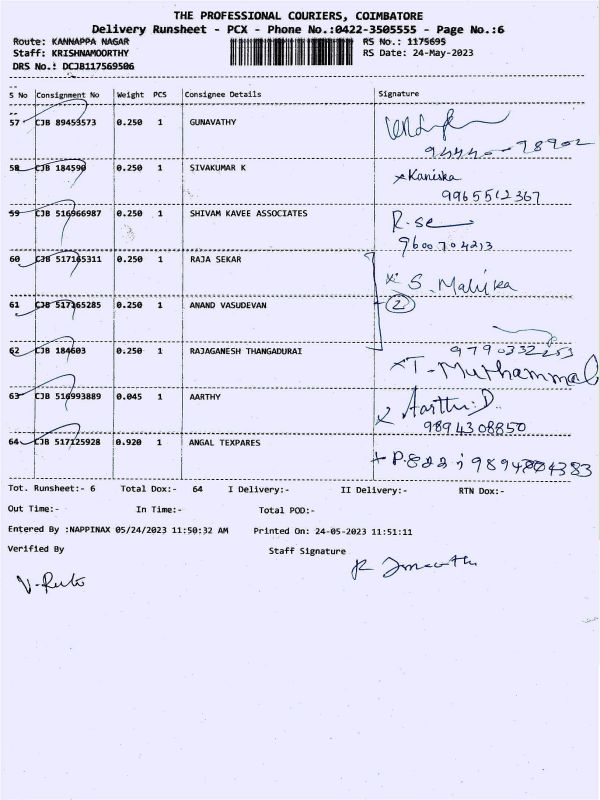 THE PROFESSIONAL COURIERS, COIMBATORE
Delivery Runsheet - PCX - Phone No.:0422-3505555 - Page No.:6
Route: KANNAPPA NAGAR RS No.: 1175695
Staff: KRISHNAMOORTHY RS Date: 24-May-2023
DRS No.: DCJB117569506
S No Consignment No Weight PCS Consignee Details Signature
57 CJB 89453573 0.250 1 GUNAVATHY
58 CJB 184590 0.250 1 SIVAKUMAR K Kaniska
9965512367
59 CJB 516966987 0.250 1 SHIVAM KAVEE ASSOCIATES R.se
9600704213
60 CJB 517165311 0.250 1 RAJA SEKAR S. Malika
61 CJB 517165285 0.250 1 ANAND VASUDEVAN 2
9790332253
62 CJB 184603 0.250 1 RAJAGANESH THANGADURAI T. Muthammal
63 CJB 516993889 0.045 1 AARTHY Aarthi.D
9894308850
64 CJB 517125928 0.920 1 ANGAL TEXPARES
Tot. Runsheet:- 6 Total Dox:- 64 I Delivery:- II Delivery:- RTN Dox:-
Out Time:- In Time:- Total POD:-
Entered By :NAPPINAX 05/24/2023 11:50:32 AM Printed On: 24-05-2023 11:51:11
Verified By Staff Signature